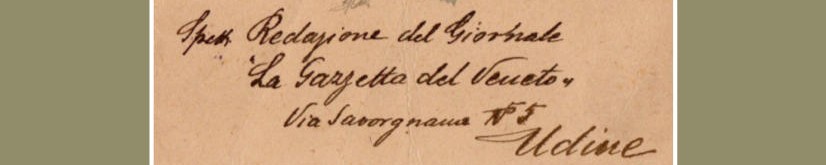 Spett. Redazione del Giornale
"La Gazzetta del Veneto"
Via Savorgnana N° 5
Udine